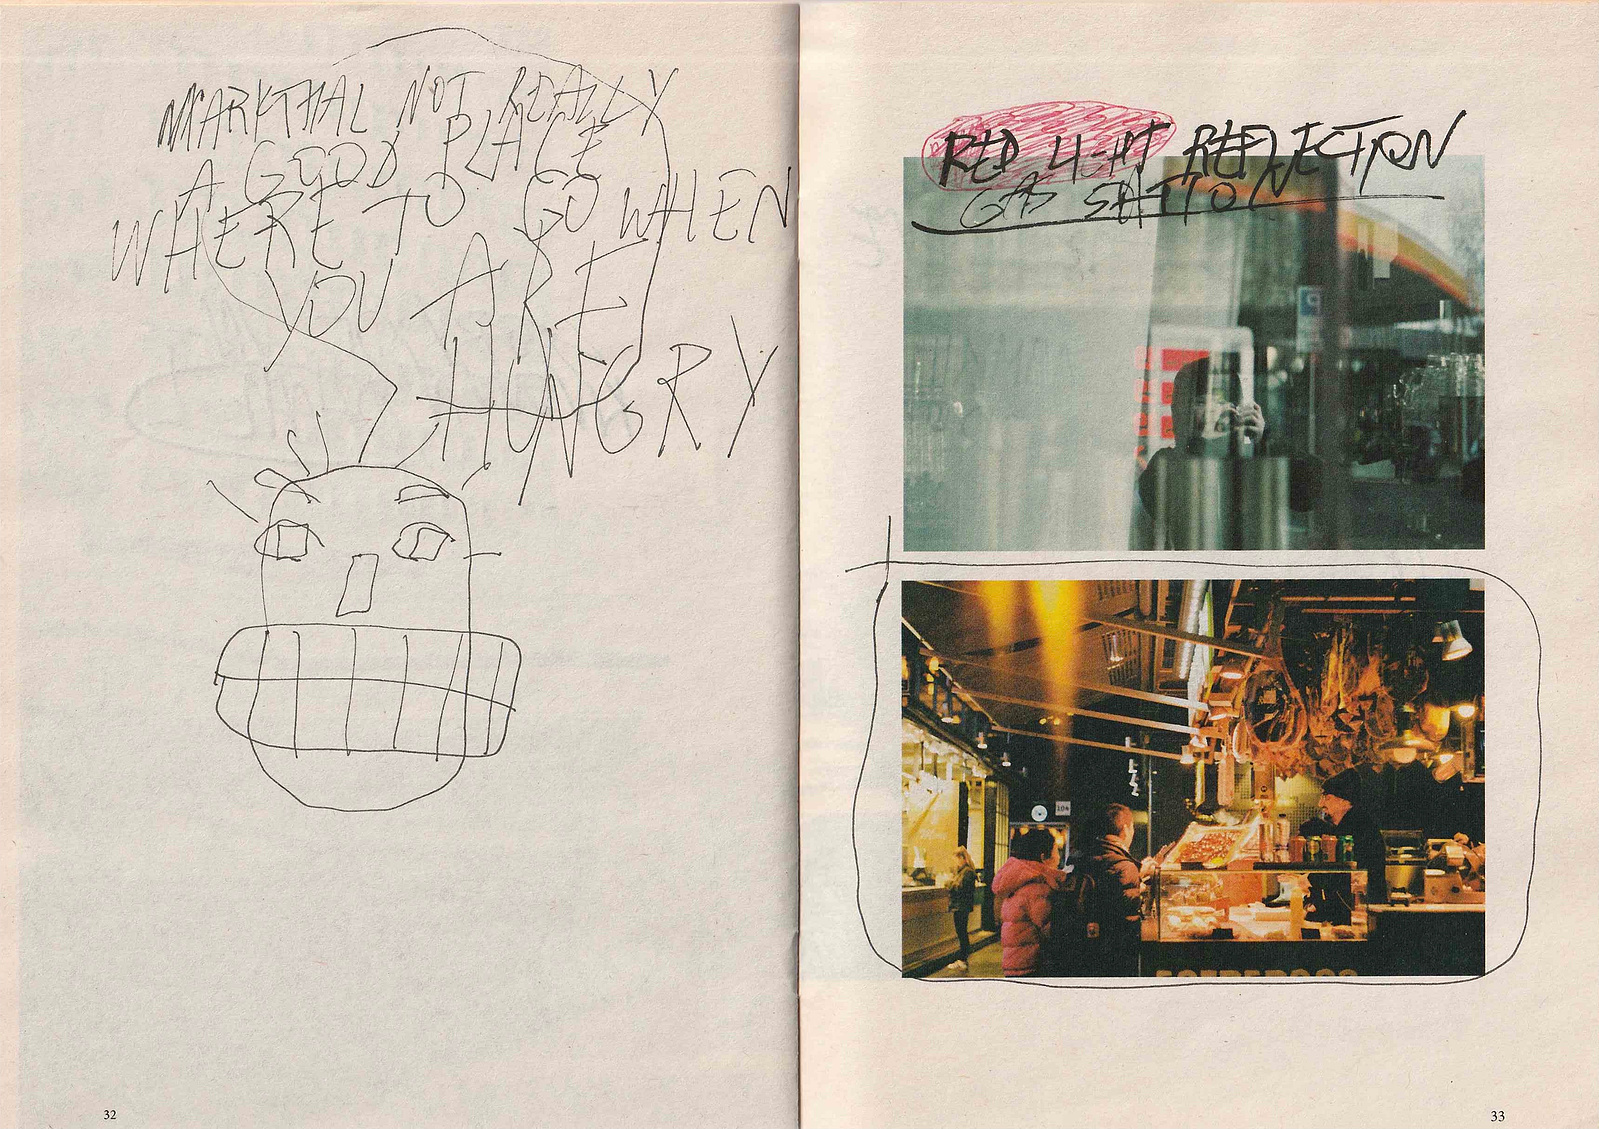 MARKTHAL NOT REALLY
A GOOD PLACE
WHERE TO GO WHEN
YOU ARE
HUNGRY
32
RED LIGHT REFLECTION
GAS STATION
104
33